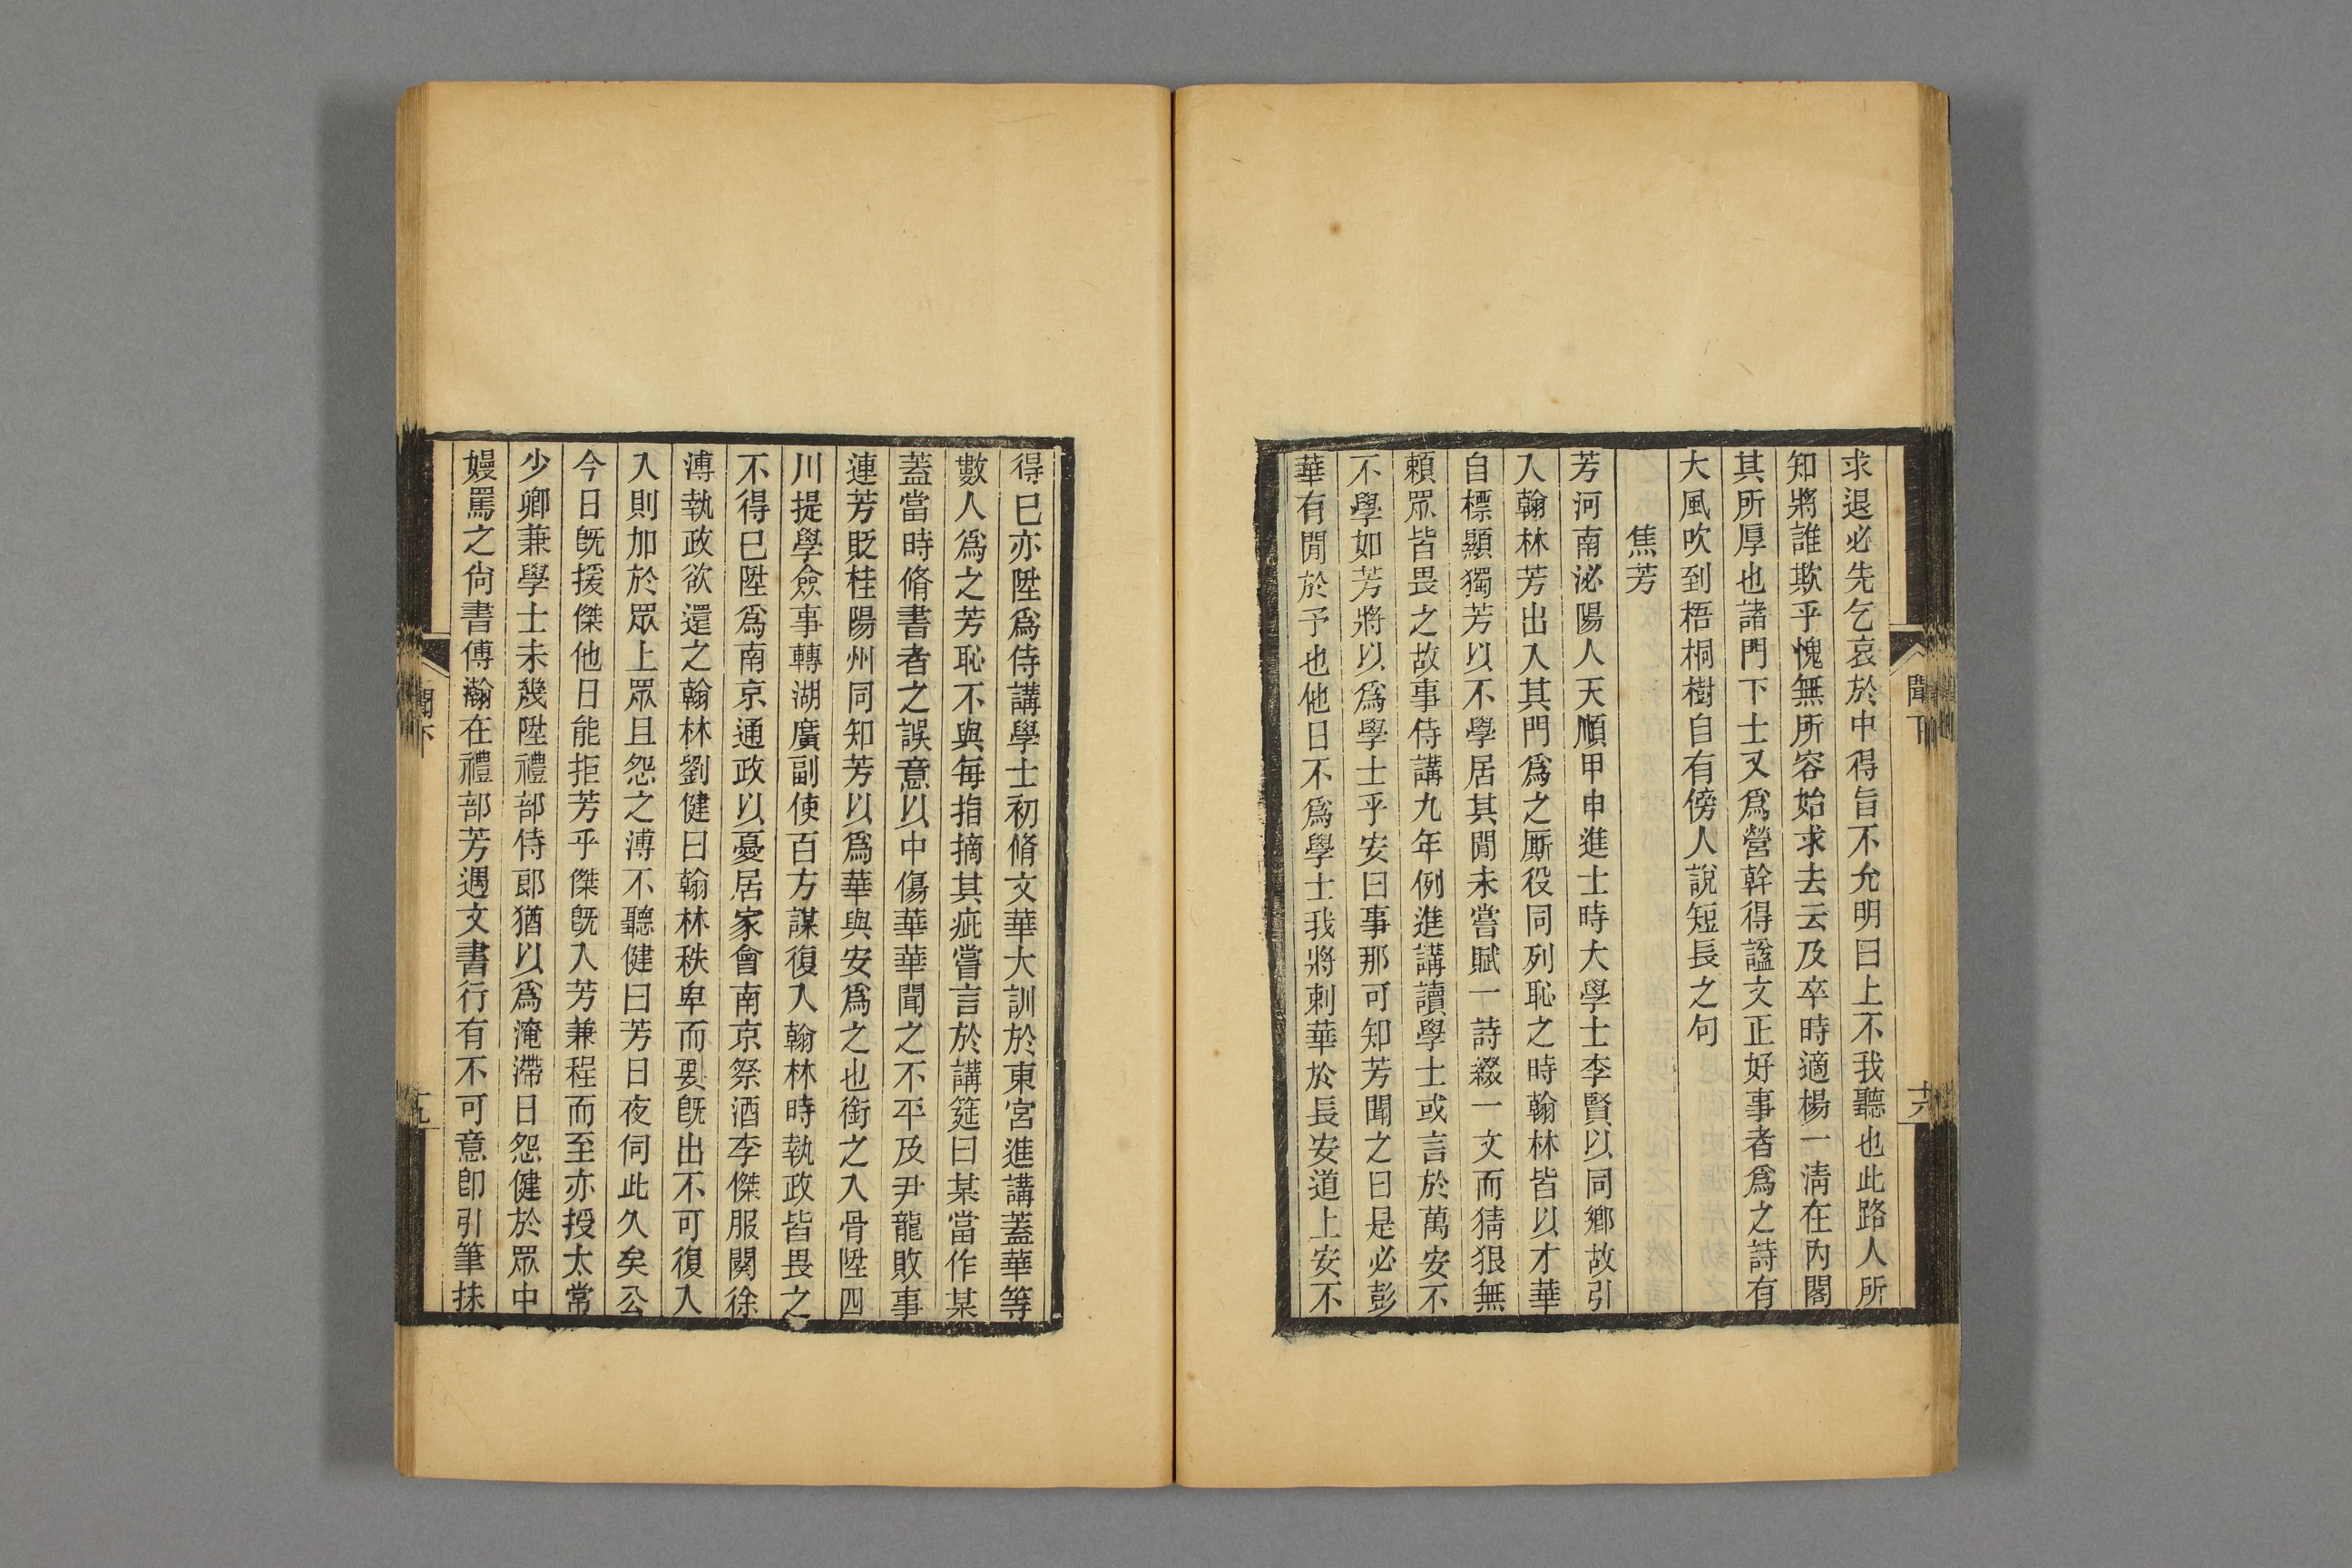 求退必先乞哀於中得旨不允明日上不我聽也此路人所
知將誰欺乎愧無所容始求去云及卒時適楊一淸在內閣
其所厚也諸門下士又爲營幹得諡文正好事者爲之詩有
大風吹到梧桐樹自有傍人說短長之句
焦芳
芳河南泌陽人天順甲申進士時大學士李賢以同鄉故引
入翰林芳出入其門爲之厮役同列恥之時翰林皆以才華
自標顯獨芳以不學居其閒未嘗賦一詩綴一文而猜狠無
賴眾皆畏之故事侍講九年例進講讀學士或言於萬安不
不學如芳將以爲學士乎安曰事那可知芳聞之曰是必彭
華有閒於予也他日不爲學士我將刺華於長安道上安不
聞下
十八
得已亦陞爲侍講學士初脩文華大訓於東宮進講蓋華等
數人爲之芳恥不與每指摘其疵嘗言於講筵曰某當作某
蓋當時脩書者之誤意以中傷華華聞之不平及尹龍敗事
連芳貶桂陽州同知芳以爲華與安爲之也銜之入骨陞四
川提學僉事轉湖廣副使百方謀復入翰林時執政皆畏之
不得已陞爲南京通政以憂居家會南京祭酒李傑服闋徐
溥執政欲還之翰林劉健曰翰林秩卑而要旣出不可復入
入則加於眾上眾且怨之溥不聽健曰芳日夜伺此久矣公
今日旣援傑他日能拒芳乎傑旣入芳兼程而至亦授太常
少卿兼學士未幾陞禮部侍郎猶以爲淹滯日怨健於眾中
嫚罵之尙書傅瀚在禮部芳遇文書行有不可意卽引筆抹
聞下
十九